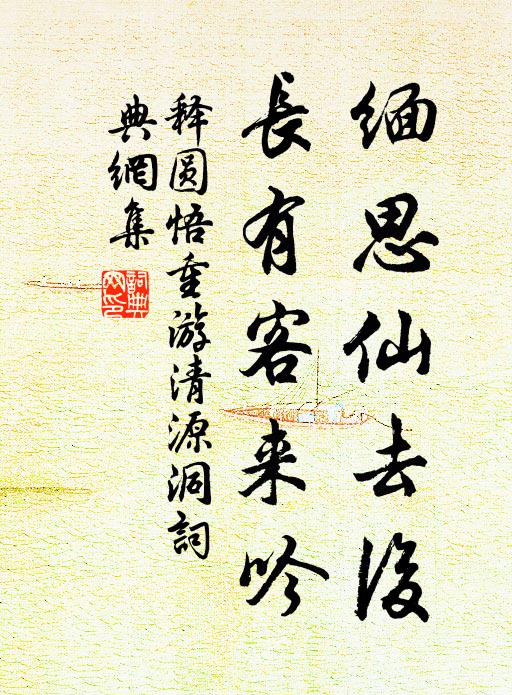 缅思仙去後
長有客来吟
释圆悟重游清源洞詞
典網集
詞典
网印